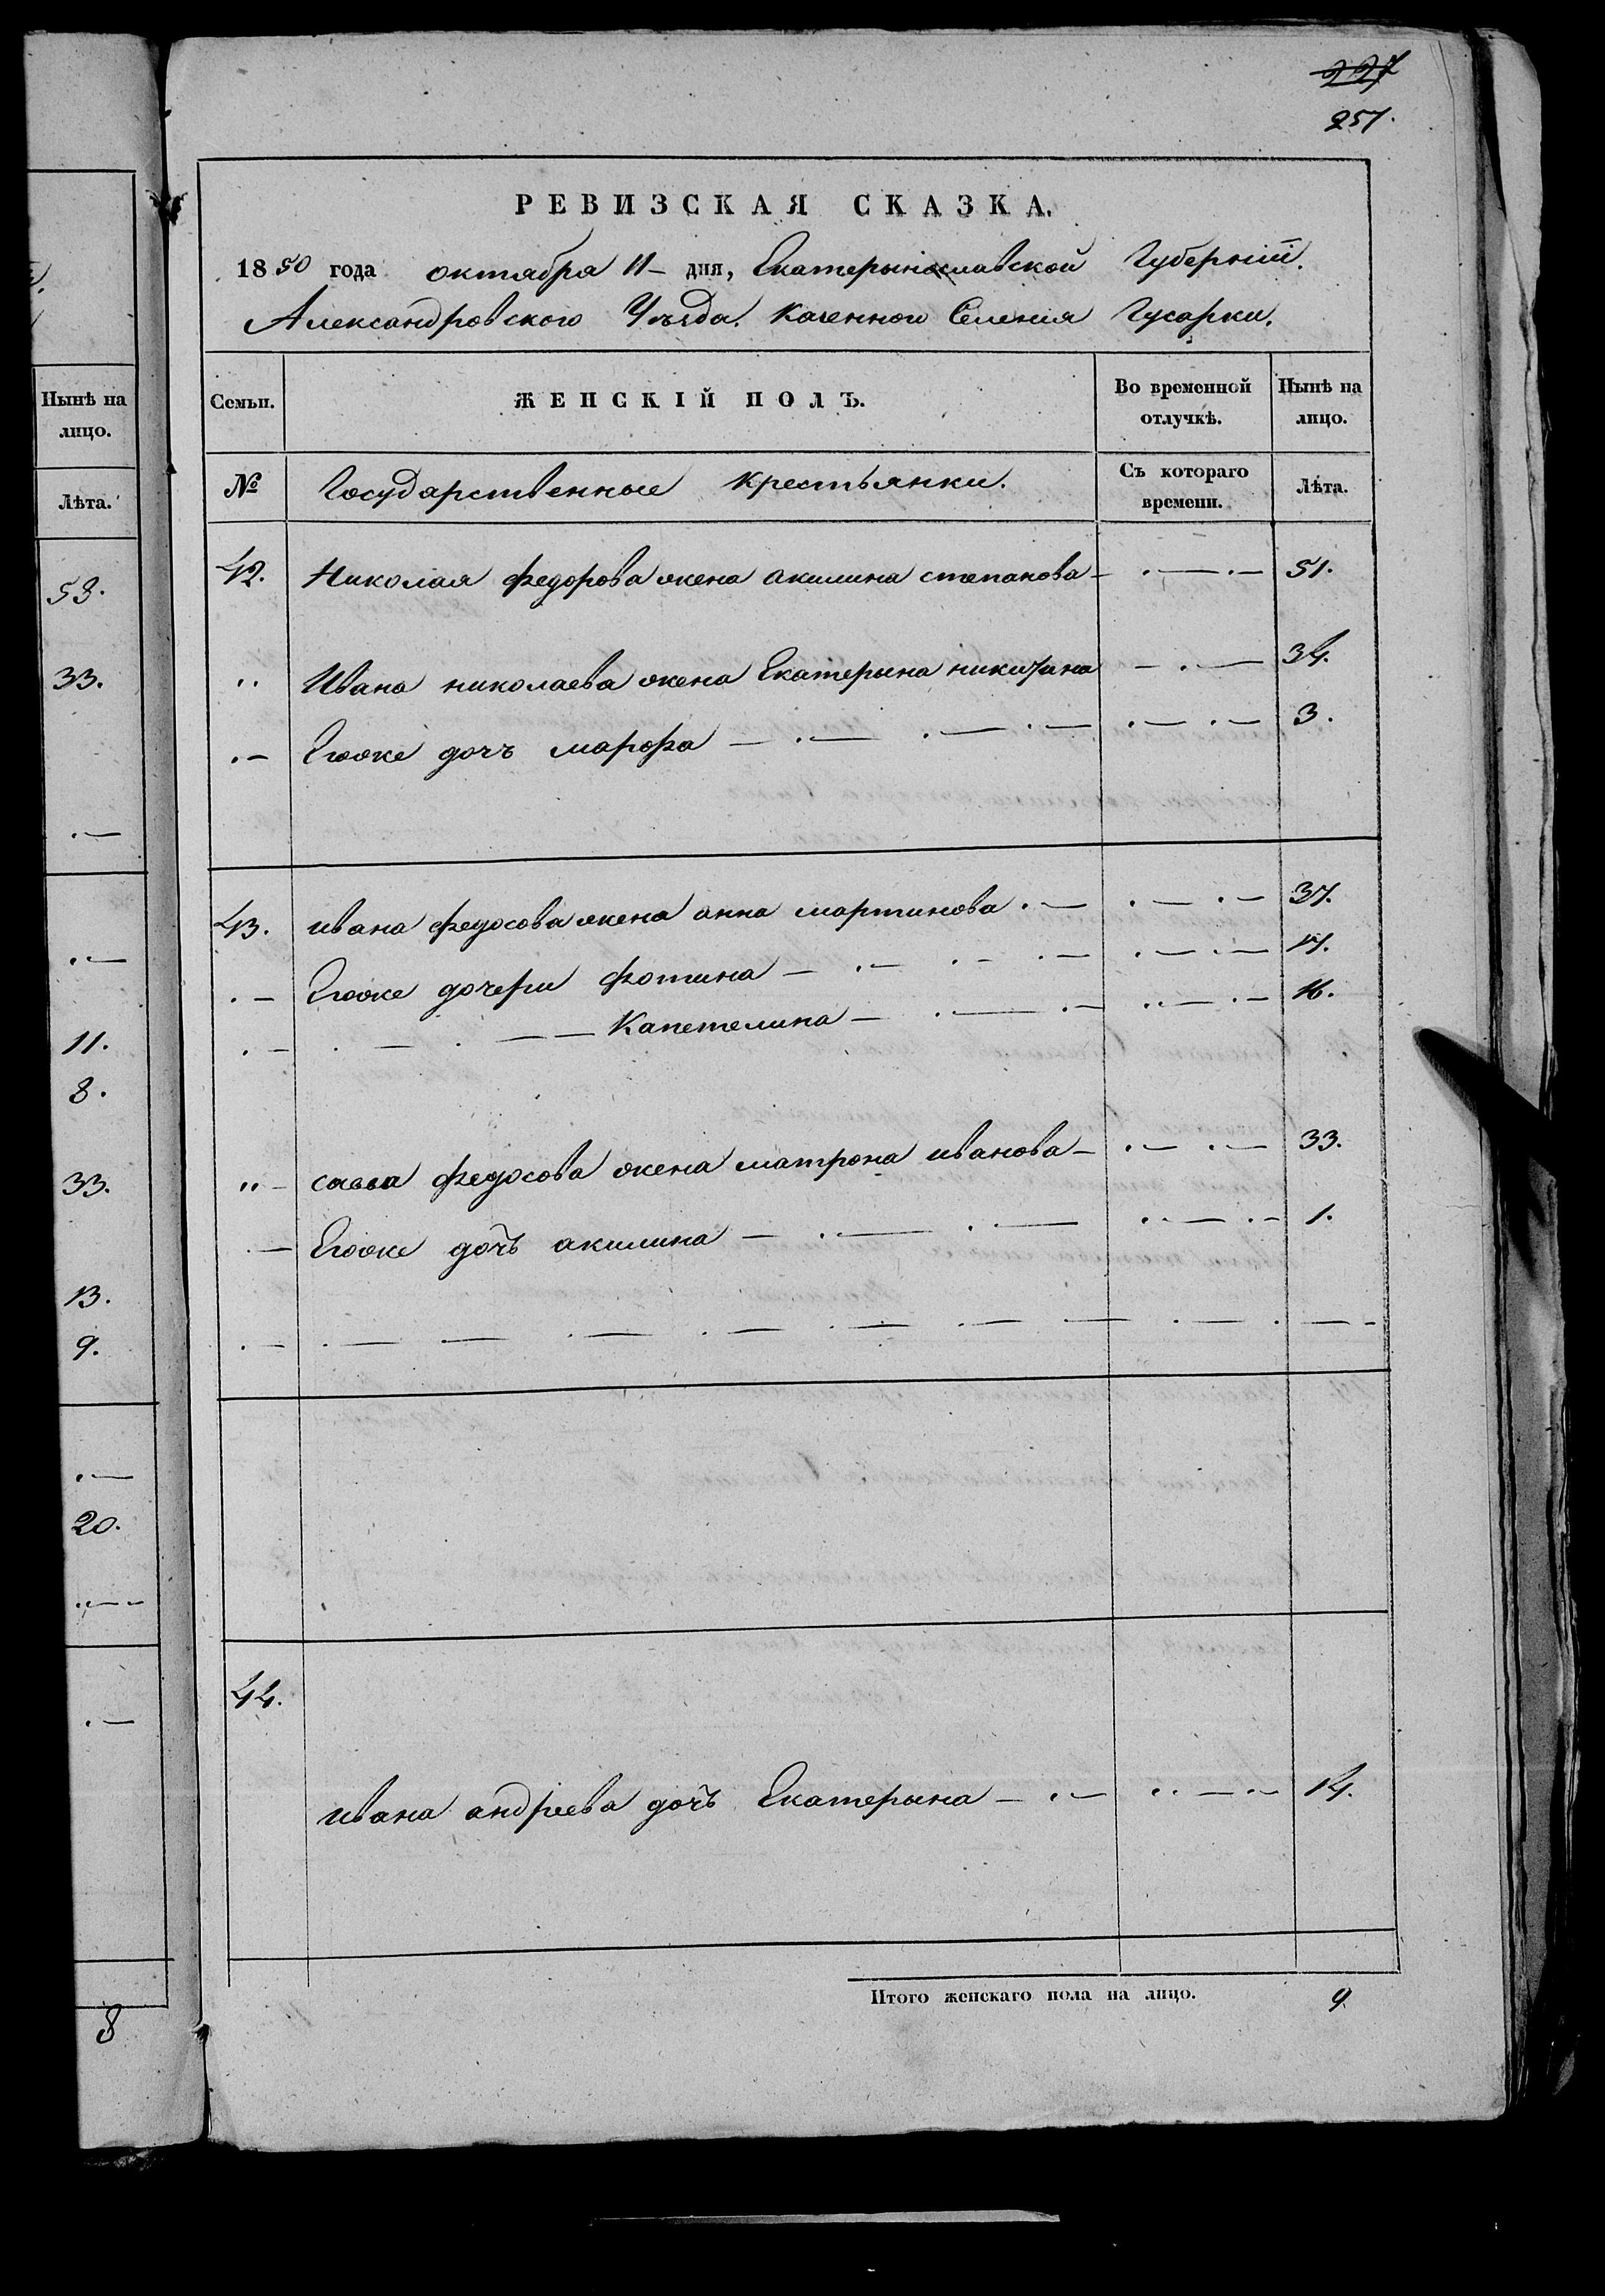 227
257.
РЕВИЗСКАЯ СКАЗКА.
1850 года октября 11 дня, Екатеринославской Губерніи.
Александровского Уѣзда. Казенного Селенія Гусарки.
Нынѣ на лицо.
Лѣта.
53.
33.
11.
8.
33.
13.
9.
20.
8
Семьи. ЖЕНСКІЙ ПОЛЪ. Во временной отлучкѣ. Нынѣ на лицо.
№ Государственные крестьянки. Съ котораго времени. Лѣта.
42. Николая федорова жена акилина степанова — 51.
" Ивана николаева жена Екатерына никитина — 34.
Егоже дочъ марфа — 3.
43. ивана федосова жена анна мартинова — 37.
Егоже дочери фотина — 17.
Капетелина — 16.
" савва федосова жена матрона иванова — 33.
Егоже дочъ акилина — 1.
44.
ивана андреева дочъ Екатерына — 14.
Итого женскаго пола на лицо. 9